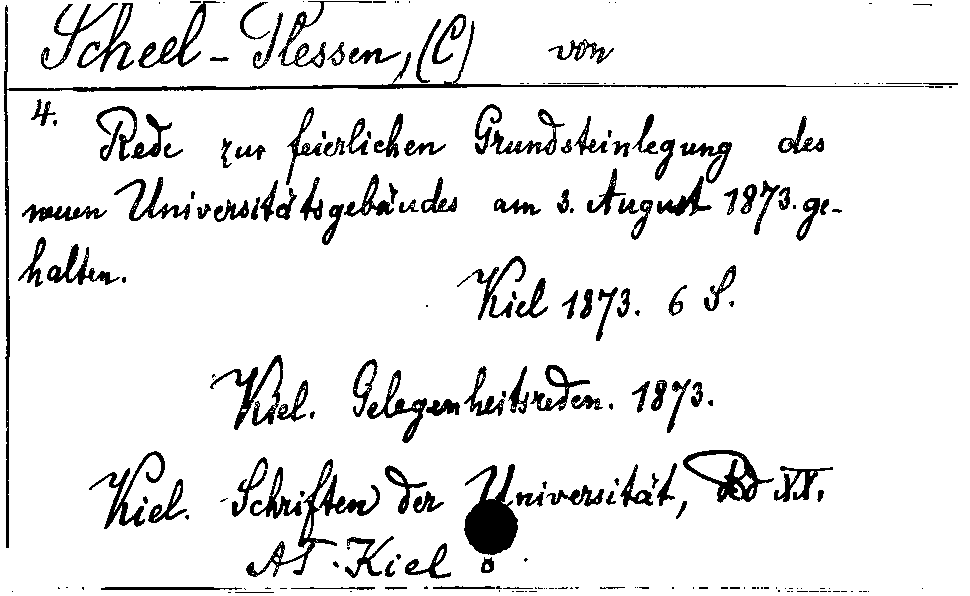 Scheel-Plessen, (C) von
4.
Rede zur feierlichen Grundsteinlegung des
neuen Universitätsgebäudes am 3. August 1873. ge-
halten.
Kiel 1873. 6 S.
Kiel. Gelegenheitsreden. 1873.
Kiel. Schriften der Universität, Bd XX.
AT. Kiel 8